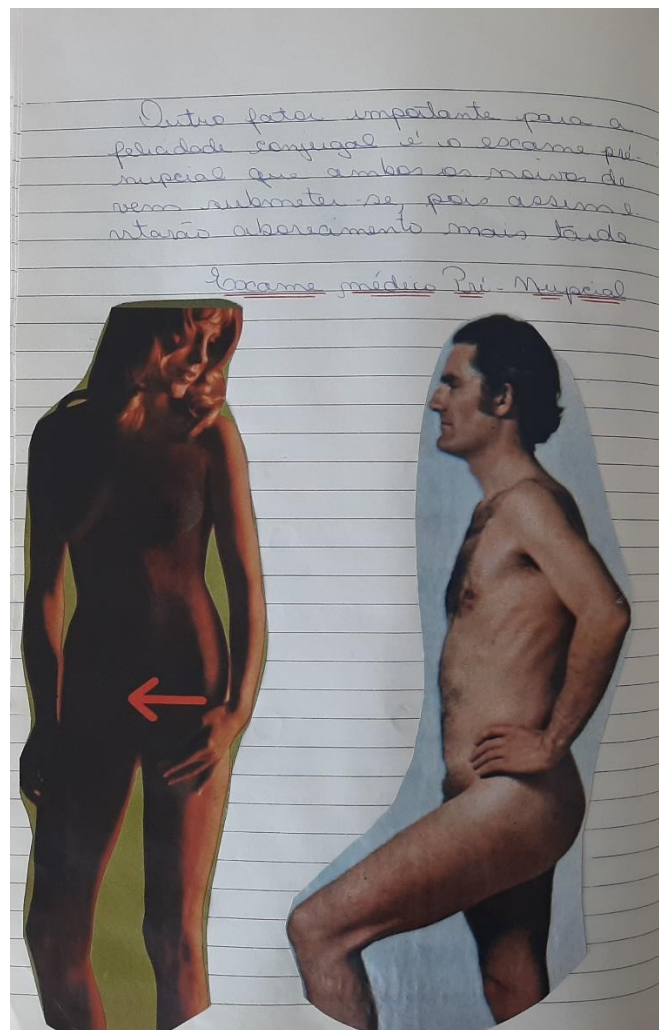 Outro fator importante para a
felicidade conjugal é o escame pré-
nupcial que ambos os noivos de
vem submeter-se, pois assim e
vitarão aborecimento mais tarde
Escame médico Pré-Nupcial